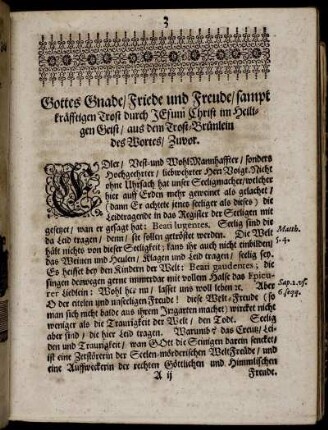 3
Gottes Gnade/ Friede und Freude/ sampt
kräfftigen Trost durch JEsum Christ im Heili-
gen Geist/ aus dem Trost-Brünlein
des Wortes/ Zuvor.
EDler/ Vest-und WohlMannhaffter/ sonders
Hochgeehrter/ liebwehrter Herr Voigt. Nicht
ohne Uhrsach hat unser Seeligmacher/ welcher
hier auff Erden mehr geweinet als gelachet/
(dann Er achtete jenes seeliger als dieses) die
Leidtragende in das Register der Seeligen mit
gesetzet/ wan er gesagt hat: Beati lugentes, Seelig sind die
da Leid tragen/ denn/ sie sollen getröstet werden. Die Welt
hält nichts von dieser Seeligkeit; kans ihr auch nicht einbilden/
das Weinen und Heulen/ Klagen und Leid tragen/ seelig sey.
Es heisset bey den Kindern der Welt: Beati gaudentes; die
singen deswegen gerne immerdar mit vollem Halse das
er Liedlein: Wohl her nu/ lasset uns woll leben ꝛc. Aber
O der eitelen und unseeligen Freude! diese Welt-Freude (so
man sich nicht balde aus ihrem Irrgarten machet) wircket nicht
weniger als die Traurigkeit der Welt/ den Todt. Seelig
aber sind/ die hier Leid tragen. Warumb? das Creutz/ Lei-
den und Traurigkeit/ wan GOtt die Seinigen darein sencket/
ist eine Zerstörerin der Seelen-mörderischen WeltFreude/ und
eine Auffweckerin der rechten Göttlichen und Himmlischen
A ij
Freude.
Matth.
5. 4.
Sap. 2. vs.
6. seqq.